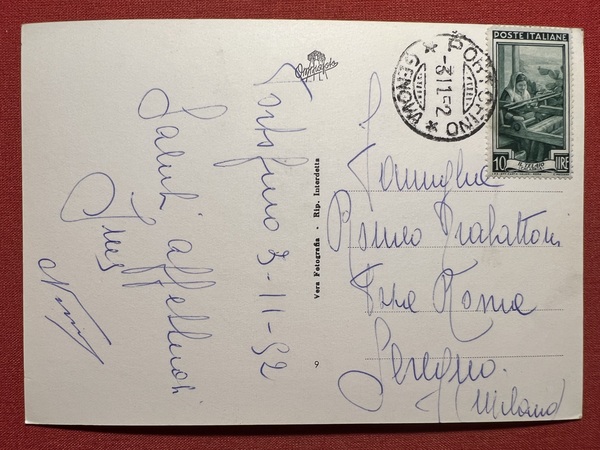 Portofino 3-11-52
Saluti affettuosi
Ines
Vera Fotografia - Rip. Interdetta
9
PORTOFINO
* GENOVA *
-3.11.52
POSTE ITALIANE
IL TELAIO
10 LIRE
Famiglia
Romeo Trabattoni
Roma
Seregno.
(Milano)